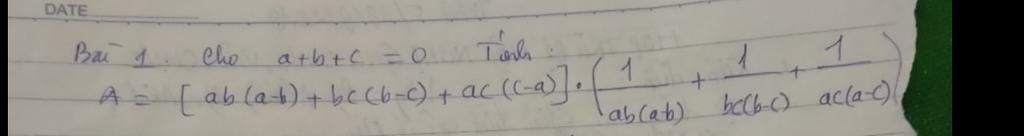 DATE
Bài 1. Cho a+b+c = 0 Tính:
A = [ab(a-b)+bc(b-c)+ac(c-a)].(1/ab(a-b) + 1/bc(b-c) + 1/ac(a-c))